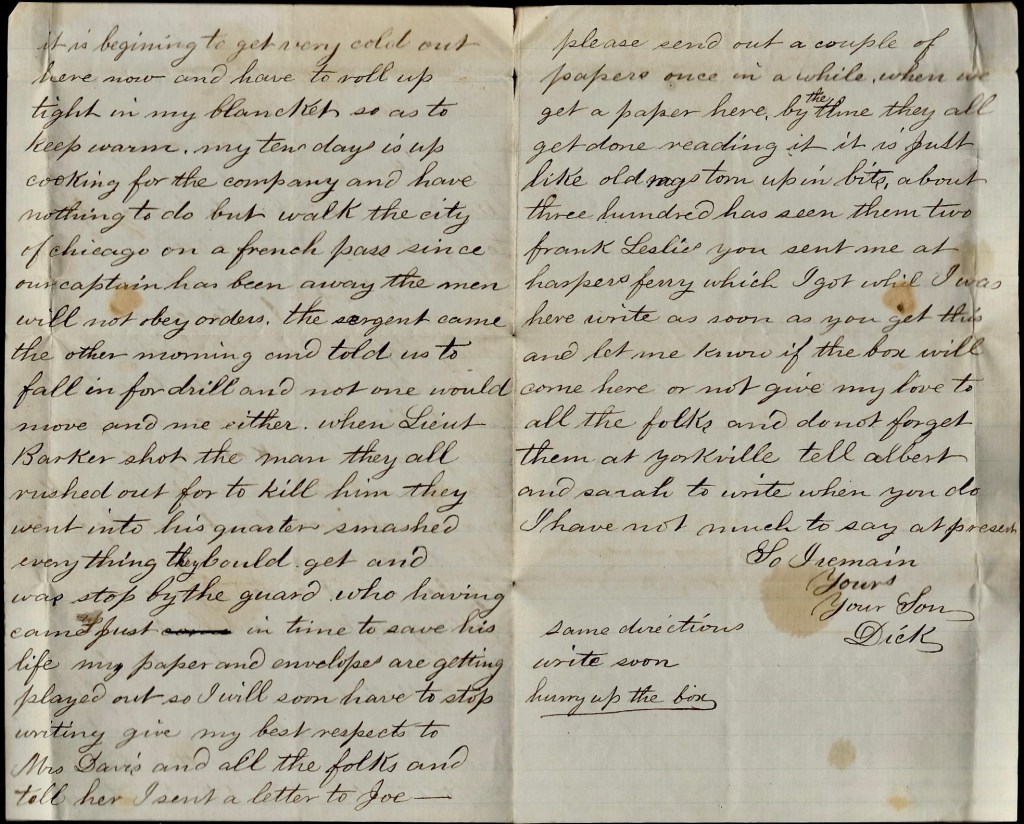 it is begining to get very cold out
here now and have to roll up
tight in my blancket so as to
keep warm. my ten days is up
cooking for the company and have
nothing to do but walk the city
of chicago on a french pass since
our captain has been away the men
will not obey orders. the sergent came
the other morning and told us to
fall in for drill and not one would
move and me either. when Lieut
Barker shot the man they all
rushed out for to kill him they
went into his quarters smashed
everything they could get and
was stop by the guard who having
came just in time to save his
life my paper and envelopes are getting
played out so I will soon have to stop
writing give my best respects to
Mrs Davis and all the folks and
tell her I sent a letter to Joe —
please send out a couple of
papers once in a while, when we
get a paper here, by the time they all
get done reading it it is just
like old rags torn up in bits, about
three hundred has seen them two
frank Leslies you sent me at
harpers ferry which I got whil I was
here write as soon as you get this
and let me know if the box will
come here or not give my love to
all the folks and do not forget
them at yorkville tell albert
and sarah to write when you do
I have not much to say at present
So I remain
Yours
Your Son
Dick
same directions
write soon
hurry up the box